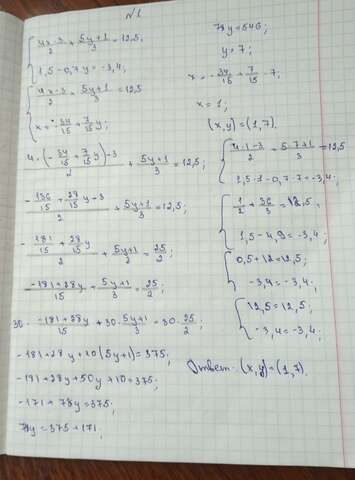 №1
{ (4x-3)/2 + (5y+1)/3 = 12,5;
1,5 - 0,7y = -3,4;
{ (4x-3)/2 + (5y+1)/3 = 12,5
x = -34/15 + 7/15 y;
(4·(-34/15 + 7/15 y) - 3)/2 + (5y+1)/3 = 12,5;
(-136/15 + 28/15 y - 3)/2 + (5y+1)/3 = 12,5;
(-181/15 + 28/15 y)/2 + (5y+1)/3 = 25/2;
(-181+28y)/15 + (5y+1)/3 = 25/2;
30 · (-181+28y)/15 + 30 · (5y+1)/3 = 30 · 25/2;
-181+28y+10(5y+1) = 375;
-181+28y+50y+10 = 375;
-171 + 78y = 375;
78y = 375 + 171;
78y = 546;
y = 7;
x = -34/15 + 7/15 · 7;
x = 1;
(x,y) = (1,7).
{ (4·1-3)/2 + (5·7+1)/3 = 12,5
1,5·1 - 0,7·7 = -3,4;
{ 1/2 + 36/3 = 12,5;
1,5 - 4,9 = -3,4;
{ 0,5+12 = 12,5;
-3,4 = -3,4;
{ 12,5 = 12,5;
-3,4 = -3,4.
Ответ: (x,y) = (1,7).